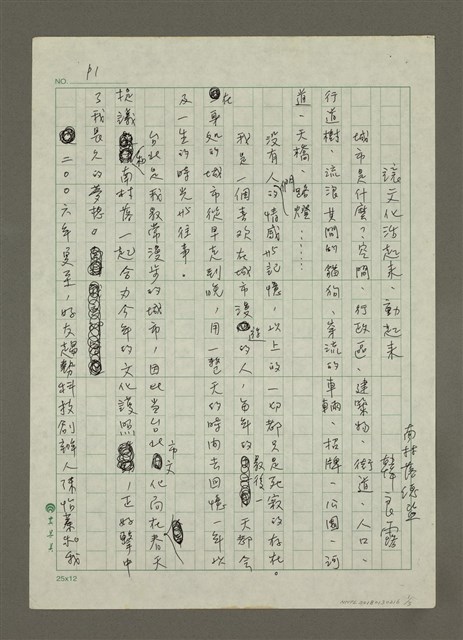 NO.
P1
讓文化活起來、動起來
南村落總監
韓良露
城市是什麼？空間、行政區、建築物、街道、人口、
行道樹、流浪其間的貓狗、車流的車輛、招牌、公園、河
道、天橋、路燈……
沒有人們的情感與記憶，以上的一切都只是死寂的存在。
我是一個喜歡在城市漫遊的人，每年的最後一天都會
在身處的城市從早走到晚，用一整天的時間去回憶一年以
及一生的時光與往事。
台北是我最常漫步的城市，因此當台北市文化局在春天
提議和南村落一起合力今年的文化護照，正好擊中
了我長久的夢想。
二〇〇六年夏至，好友趨勢科技創辦人陳怡蓁和我
25x12